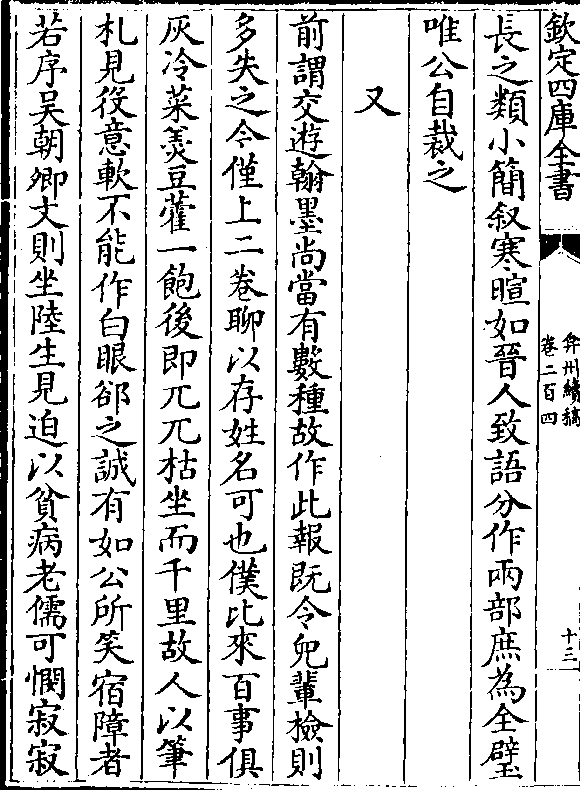 欽定四庫全書
弇州續稿
卷二百四
十三
長之類小簡叙寒暄如晉人致語分作兩部庶為全璧
唯公自裁之
又
前謂交遊翰墨尚當有數種故作此報既令兒輩檢則
多失之今僅上二卷聊以存姓名可也僕比來百事俱
灰冷菜羮豆藿一飽後即兀兀枯坐而千里故人以筆
札見役意軟不能作白眼郤之誠有如公所笑宿障者
若序吴朝卿文則坐陸生見迫以貧病老儒可憫寂寂